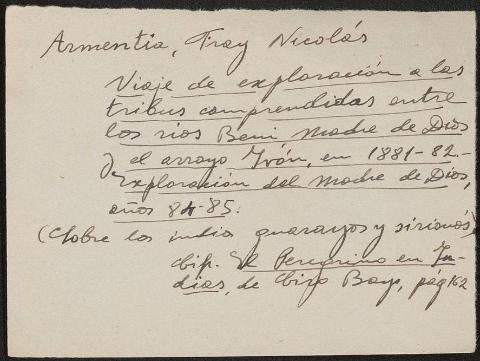 Armentia, Fray Nicolás
Viaje de exploración a las
tribus comprendidas entre
los rios Beni Madre de Dios
y el arroyo Ivón, en 1881-82.-
Exploración del Madre de Dios,
años 84-85.
(Sobre los indios guarayos y sirionós)
El Peregrino en In-
dias, de Ciro Bayo, pág 162